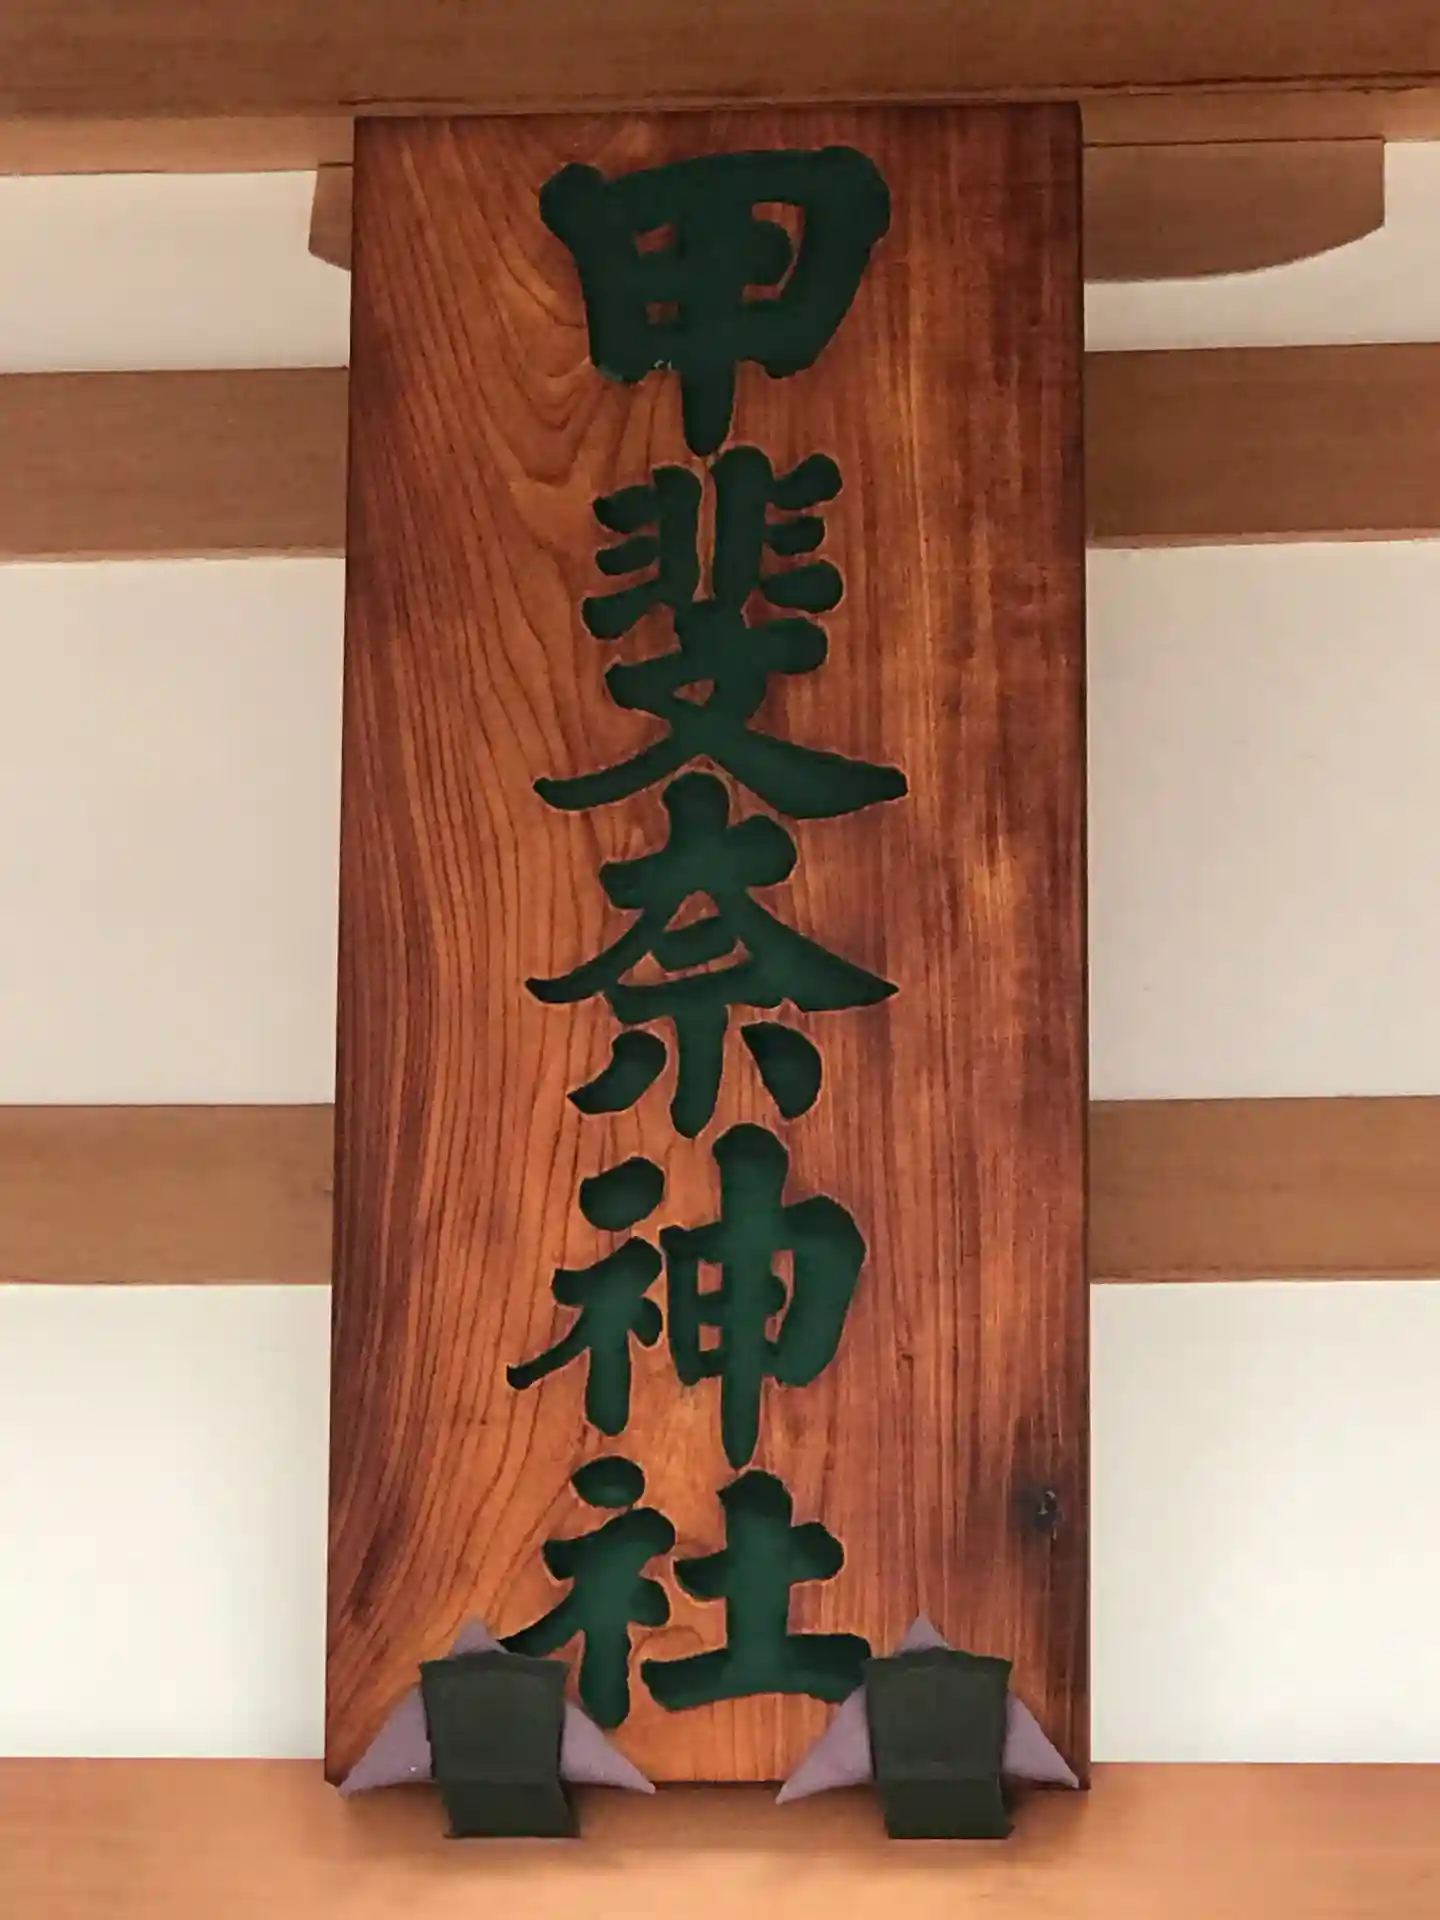 甲斐奈神社